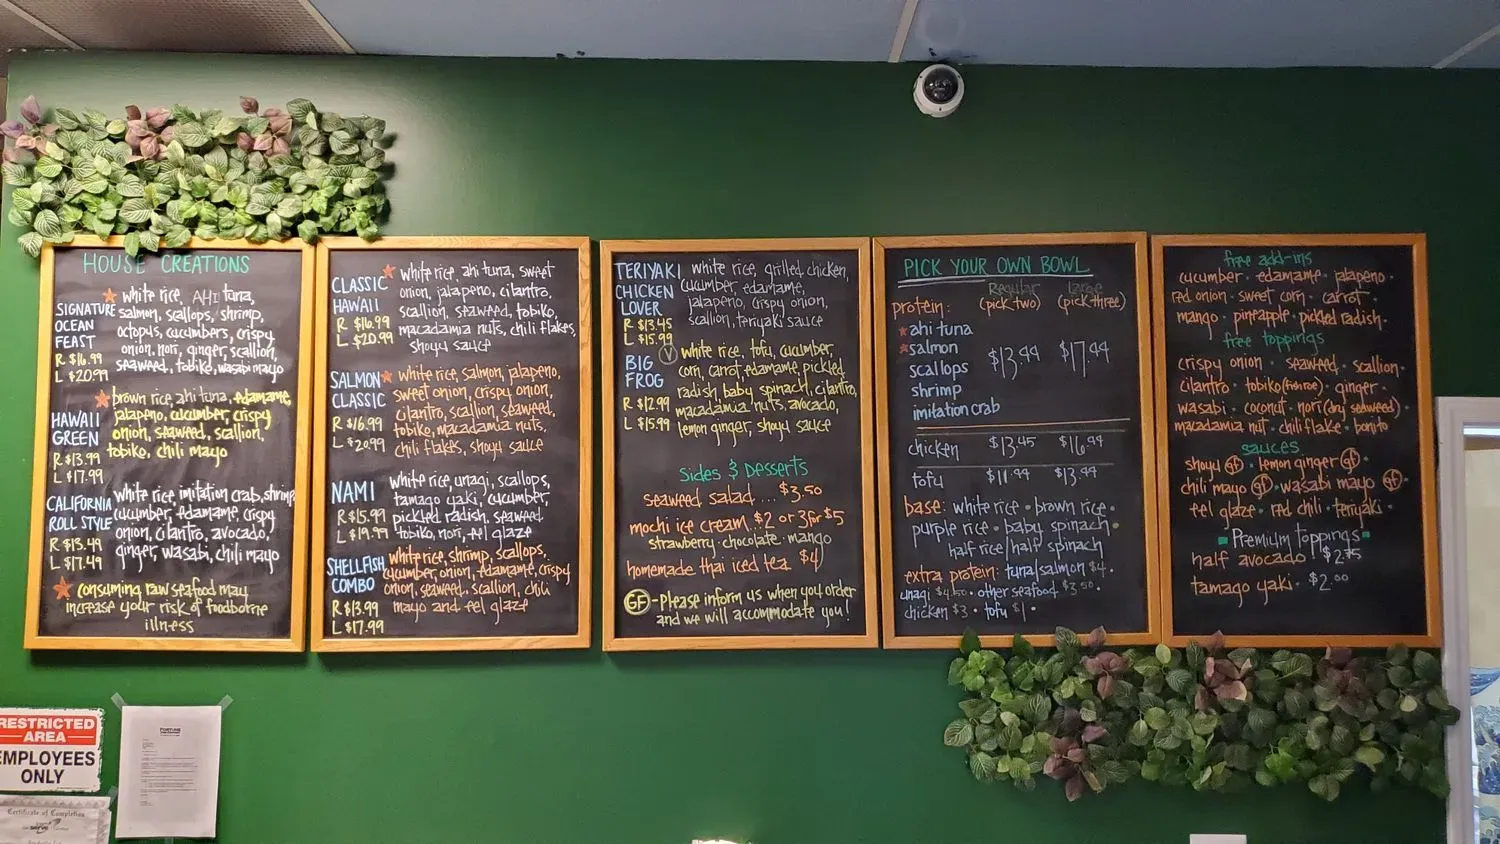 HOUSE CREATIONS
SIGNATURE OCEAN FEAST
R $16.99
L $20.99
white rice, AHI tuna,
salmon, scallops, shrimp,
octopus, cucumbers, crispy
onion, nori, ginger, scallion,
seaweed, tobiko, wasabi mayo
HAWAII GREEN
R $13.99
L $17.99
brown rice, ahi tuna, edamame,
jalapeno, cucumber, crispy
onion, seaweed, scallion,
tobiko, chili mayo
CALIFORNIA ROLL STYLE
R $13.49
L $17.49
white rice, imitation crab, shrimp,
cucumber, edamame, crispy
onion, cilantro, avocado,
ginger, wasabi, chili mayo
consuming raw seafood may
increase your risk of foodborne
illness
CLASSIC HAWAII
R $16.99
L $20.99
white rice, ahi tuna, sweet
onion, jalapeno, cilantro,
scallion, seaweed, tobiko,
macadamia nuts, chili flakes,
shoyu sauce
SALMON CLASSIC
R $16.99
L $20.99
white rice, salmon, jalapeno,
sweet onion, crispy onion,
cilantro, scallion, seaweed,
tobiko, macadamia nuts,
chili flakes, shoyu sauce
NAMI
R $15.99
L $19.99
white rice, unagi, scallops,
tamago yaki, cucumber,
pickled radish, seaweed
tobiko, nori, eel glaze
SHELLFISH COMBO
R $13.99
L $17.99
white rice, shrimp, scallops,
cucumber, onion, edamame, crispy
onion, seaweed, scallion, chili
mayo and eel glaze
TERIYAKI CHICKEN LOVER
R $13.45
L $15.99
white rice, grilled chicken,
cucumber, edamame,
jalapeno, crispy onion,
scallion, teriyaki sauce
BIG FROG
V
R $12.99
L $15.99
white rice, tofu, cucumber,
corn, carrot, edamame, pickled
radish, baby spinach, cilantro,
macadamia nuts, avocado,
lemon ginger, shoyu sauce
Sides & Desserts
seaweed salad ... $3.50
mochi ice cream .. $2 or 3 for $5
strawberry · chocolate · mango
homemade thai iced tea $4
GF - Please inform us when you order
and we will accommodate you!
PICK YOUR OWN BOWL
Regular large
protein: (pick two) (pick three)
ahi tuna
salmon
scallops
shrimp
imitation crab
$13.99 $17.99
chicken $13.45 $16.99
tofu $11.99 $13.99
base: white rice · brown rice ·
purple rice · baby spinach ·
half rice/half spinach
extra protein: tuna/salmon $4 ·
unagi $4.50 · other seafood $3.50 ·
chicken $3 · tofu $1 ·
free add-ins
cucumber · edamame · jalapeno ·
red onion · sweet corn · carrot ·
mango · pineapple · pickled radish ·
free toppings
crispy onion · seaweed · scallion ·
cilantro · tobiko (fish roe) · ginger ·
wasabi · coconut · nori (dry seaweed) ·
macadamia nut · chili flake · bonito
sauces
shoyu gf · lemon ginger gf ·
chili mayo gf · wasabi mayo gf ·
eel glaze · red chili · teriyaki ·
Premium Toppings
half avocado $2.75
tamago yaki · $2.00
RESTRICTED
AREA
EMPLOYEES
ONLY
Certificate of Completion